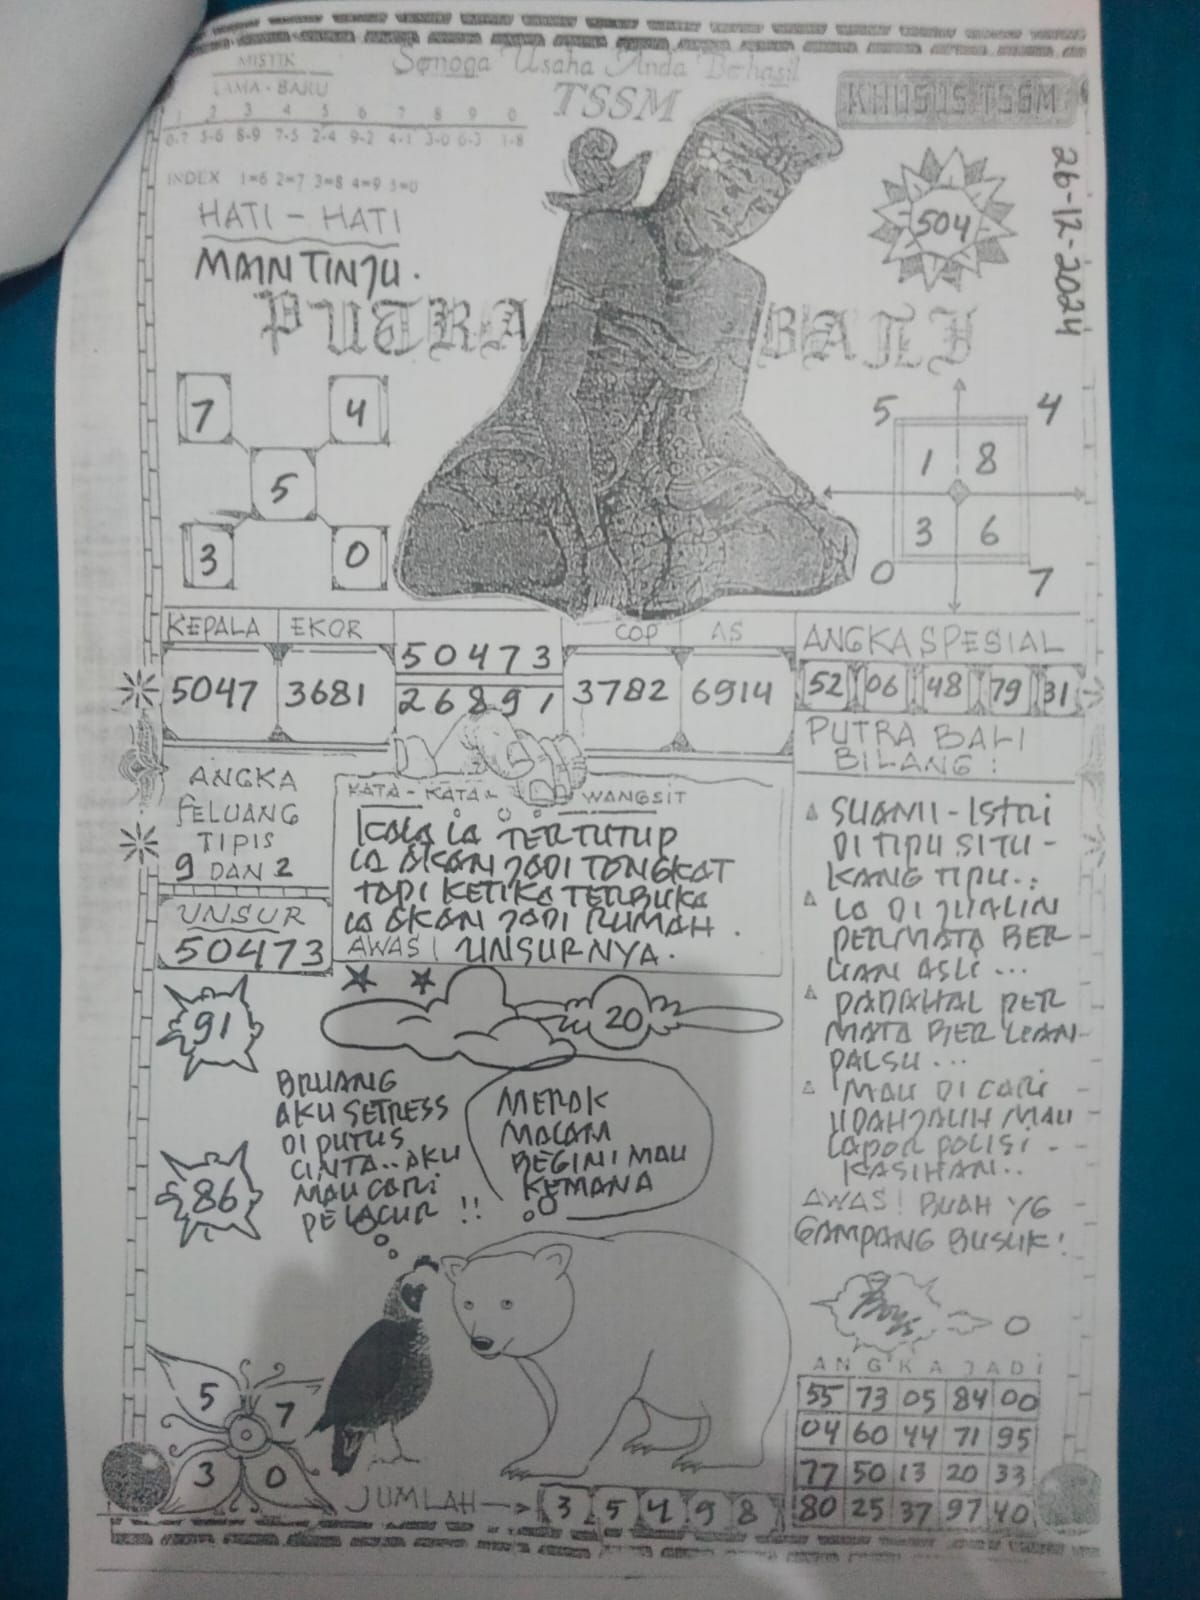 MISTIK
LAMA - BARU
1 2 3 4 5 6 7 8 9 0
0-7 5-6 8-9 7-5 2-4 9-2 4-1 3-0 6-3 1-8
INDEX 1=6 2=7 3=8 4=9 5=0
Semoga Usaha Anda Berhasil
TSSM
KHUSUS TSSM
26-12-2024
HATI - HATI
MAIN TINJU.
504
PUTRA BALI
7 4
5
3 0
5 4
1 8
3 6
0 7
KEPALA EKOR
5047 3681
50473
26891
COP AS
3782 6914
ANGKA SPESIAL
52 06 48 79 31
PUTRA BALI
BILANG :
SUAMI - ISTRI
DI TIPU SI TU -
KANG TIPU..
IA DI JUALIN
PERMATA BER
LIAN ASLI ...
PADAHAL PER
MATA BER LIAN
PALSU ...
MAU DI CARI
UDAH JAUH MAU
LAPOR POLISI -
KASIHAN..
AWAS! BUAH YG
GAMPANG BUSUK!
ANGKA
PELUANG
TIPIS
9 DAN 2
UNSUR
50473
KATA - KATA WANGSIT
KALA IA TERTUTUP
IA AKAN JADI TONGKAT
TAPI KETIKA TERBUKA
IA AKAN JADI RUMAH.
AWAS! UNSURNYA.
91
20
86
BRUANG
AKU SETRESS
DI PUTUS
CINTA.. AKU
MAU CARI
PELACUR !!
MERAK
MALAM
BEGINI MAU
KEMANA
0
5 7
3 0
JUMLAH → 3 5 4 9 8
ANGKA JADI
55 73 05 84 00
04 60 44 71 95
77 50 13 20 33
80 25 37 97 40